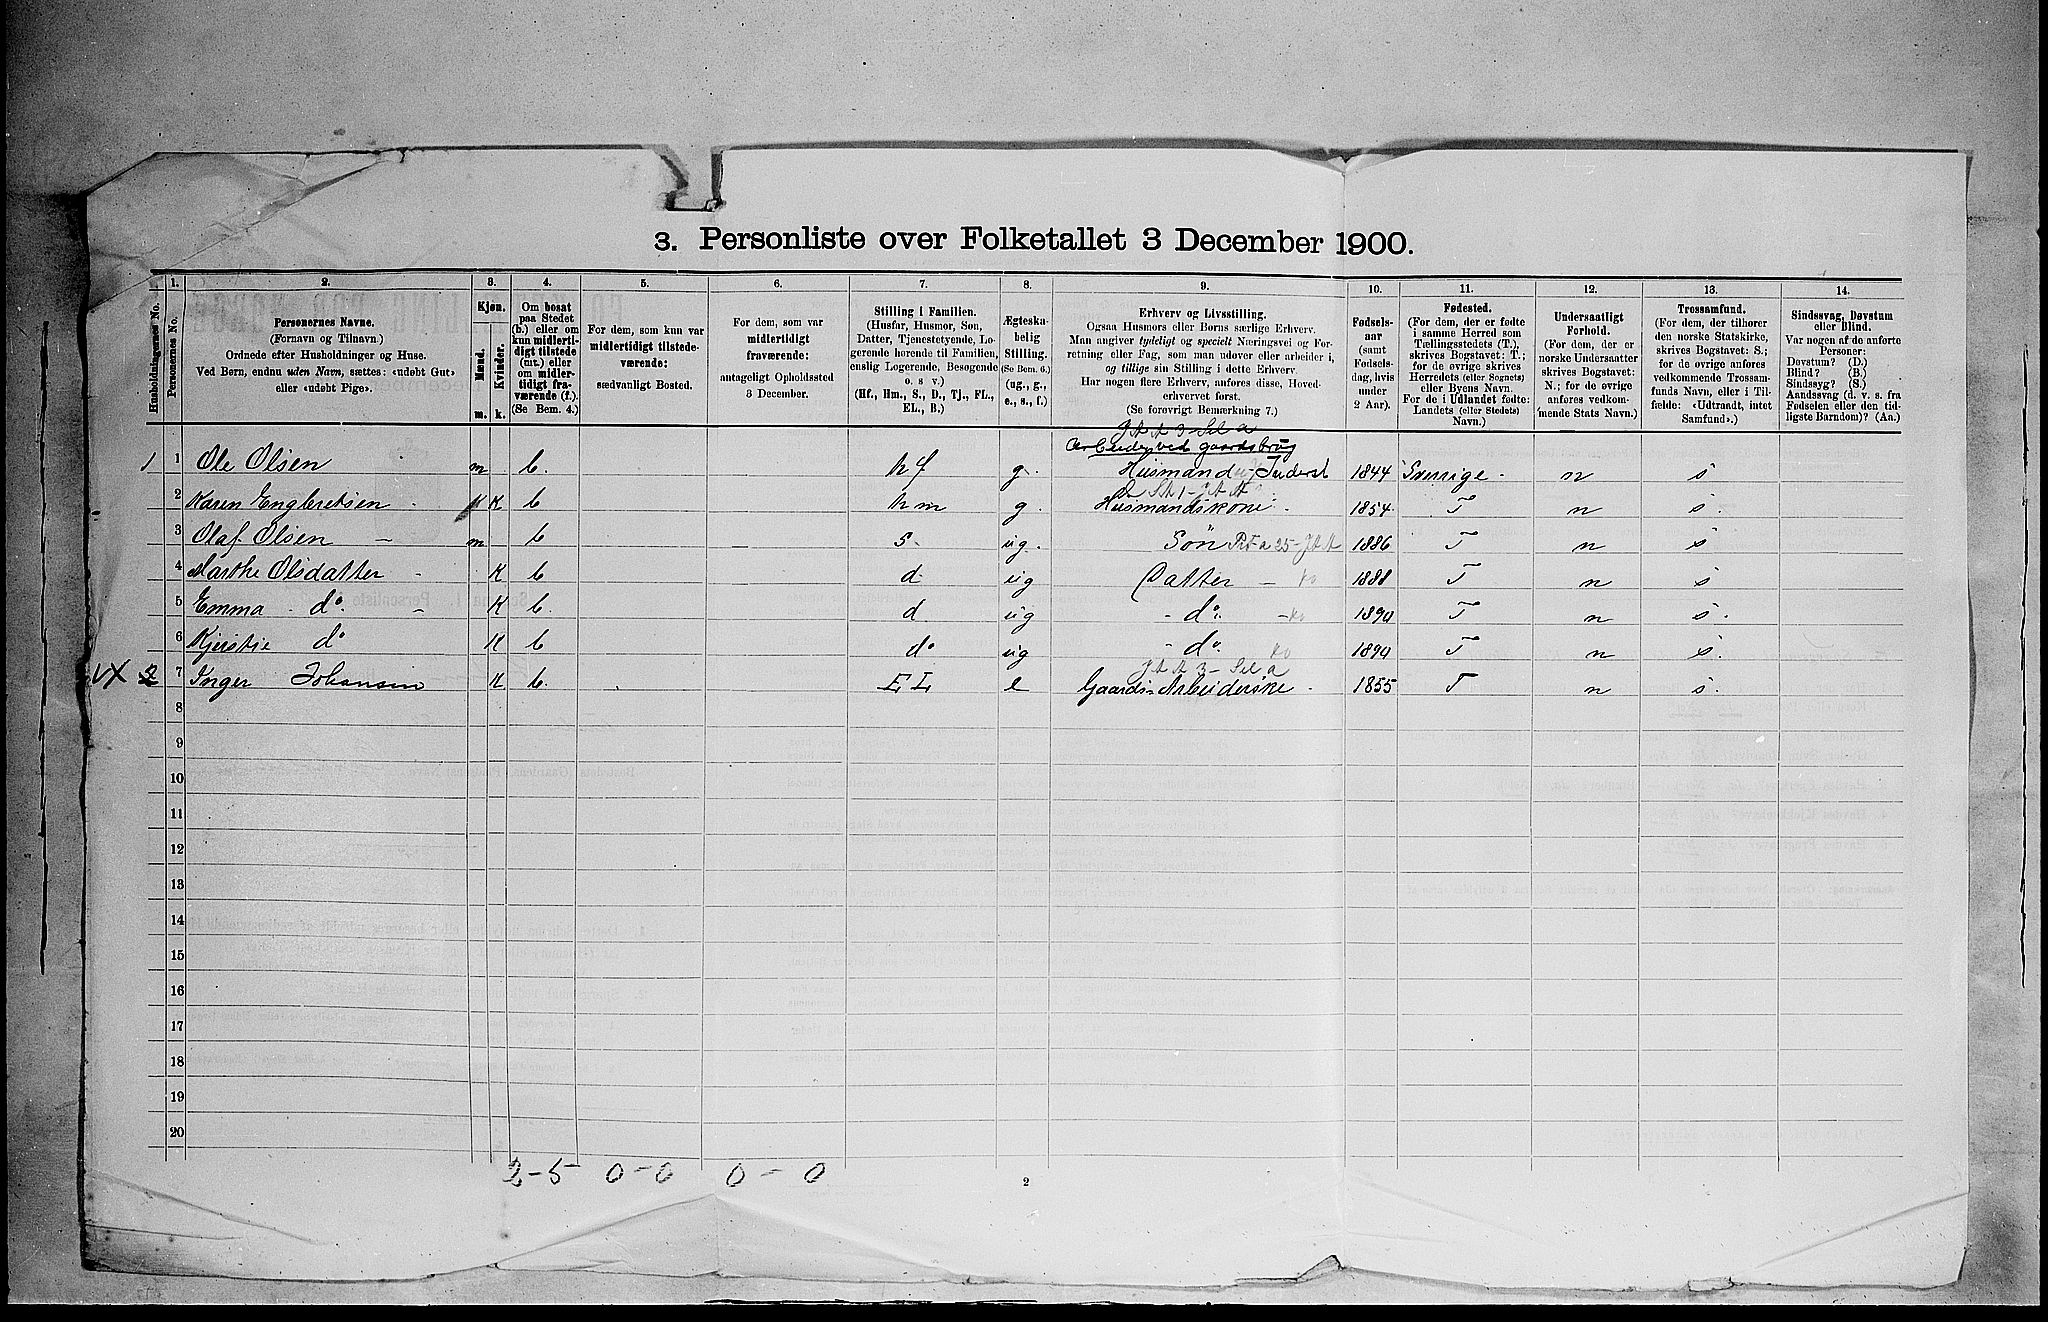 3. Personliste over Folketallet 3 December 1900.
Husholdningernes No.
1.
Personernes No.
2.
Personernes Navne.
(Fornavn og Tilnavn.)
Ordnede efter Husholdninger og Huse.
Ved Børn, endnu uden Navn, sættes: «udøbt Gut»
eller «udøbt Pige».
3.
Kjøn.
Mænd.
Kvinder.
m. k.
4.
Om bosat
paa Stedet
(b.) eller om
kun midlerti-
digt tilstede
(mt.) eller
om midler-
tidigt fra-
værende (f.).
(Se Bem. 4.)
5.
For dem, som kun var
midlertidigt tilstede-
værende:
sædvanligt Bosted.
6.
For dem, som var
midlertidigt
fraværende:
antageligt Opholdssted
3 December.
7.
Stilling i Familien.
(Husfar, Husmor, Søn,
Datter, Tjenestetyende, Lo-
gerende hørende til Familien,
enslig Logerende, Besøgende
o. s v.)
(Hf., Hm., S., D., Tj., FL.,
EL., B.)
8.
Ægteska-
belig
Stilling.
(Se Bem. 6.)
(ug., g.,
e., s., f.)
9.
Erhverv og Livsstilling.
Ogsaa Husmors eller Børns særlige Erhverv.
Man angiver tydeligt og specielt Næringsvei og For-
retning eller Fag, som man udøver eller arbeider i,
og tillige sin Stilling i dette Erhverv.
Har nogen flere Erhverv, anføres disse, Hoved-
erhvervet først.
(Se forøvrigt Bemærkning 7.)
10.
Fødsels-
aar
(samt
Fødsels-
dag, hvis
under
2 Aar).
11.
Fødested.
(For dem, der er fødte
i samme Herred som
Tællingsstedets (T.),
skrives Bogstavet: T.;
for de øvrige skrives
Herredets (eller Sognets)
eller Byens Navn.
For de i Udlandet fødte:
Landets (eller Stedets)
Navn.)
12.
Undersaatligt
Forhold.
(For dem, der er
norske Undersaatter
skrives Bogstavet:
N.; for de øvrige
anføres vedkom-
mende Stats Navn.)
13.
Trossamfund.
(For dem, der tilhører
den norske Statskirke,
skrives Bogstavet: S.;
for de øvrige anføres
vedkommende Trossam-
funds Navn, eller i Til-
fælde: «Udtraadt, intet
Samfund».)
14.
Sindssvag, Døvstum
eller Blind.
Var nogen af de anførte
Personer:
Døvstum? (D.)
Blind? (B.)
Sindssyg? (S.)
Aandssvag (d. v. s. fra
Fødselen eller den tid-
ligste Barndom)? (Aa.)
Arbeider ved gaardsbrug
1 1 Ole Olsen m b. hf g. Husmand Inderst 1844 Sverrige. n s
2 Karen Engbretsen K b hm g. Husmandskone 1854 T n s.
3 Olaf Olsen m b s. ug. Søn 1886 T n s
4 Marthe Olsdatter K b d. ug Datter 1888 T n s.
5 Emma do. K b. d ug do. 1890 T n s.
6 Kjerstie do K b do ug do. 1890 T n s.
VX 2 7 Inger Johansen K b. EL e Gaards-Arbeiderske. 1855 T n s.
8
9
10
11
12
13
14
15
16
17
18
19
20
2-5- 0-0 0-0
2